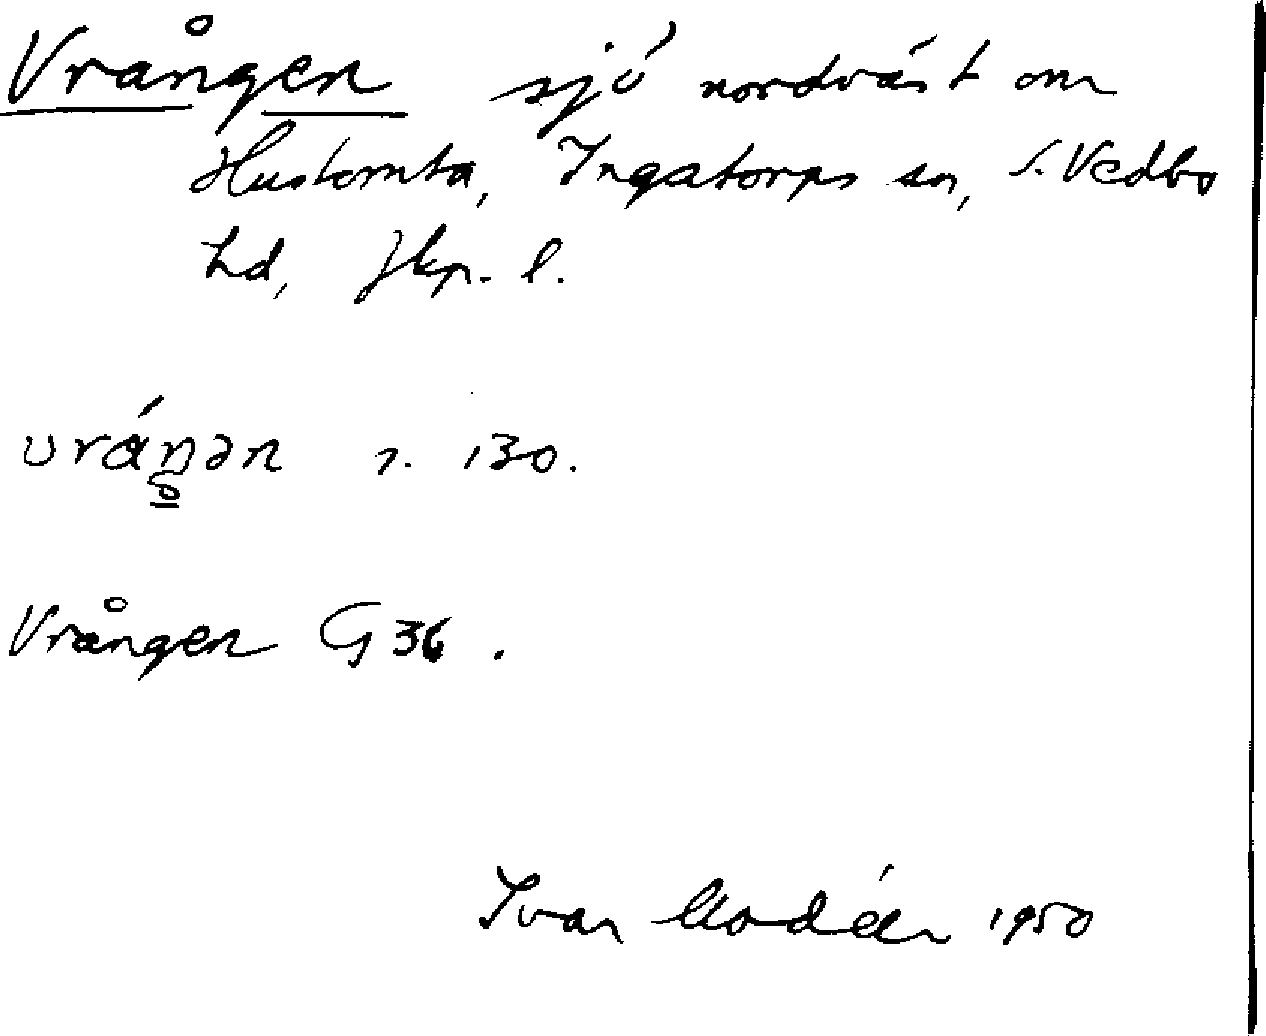 Vrången sjö nordväst om
Hustomta, Ingatorps sn, S. Vedbo
hd, Jkp. l.
vráŋən s. 130.
Vrången G 36.
Ivar Modéer 1950